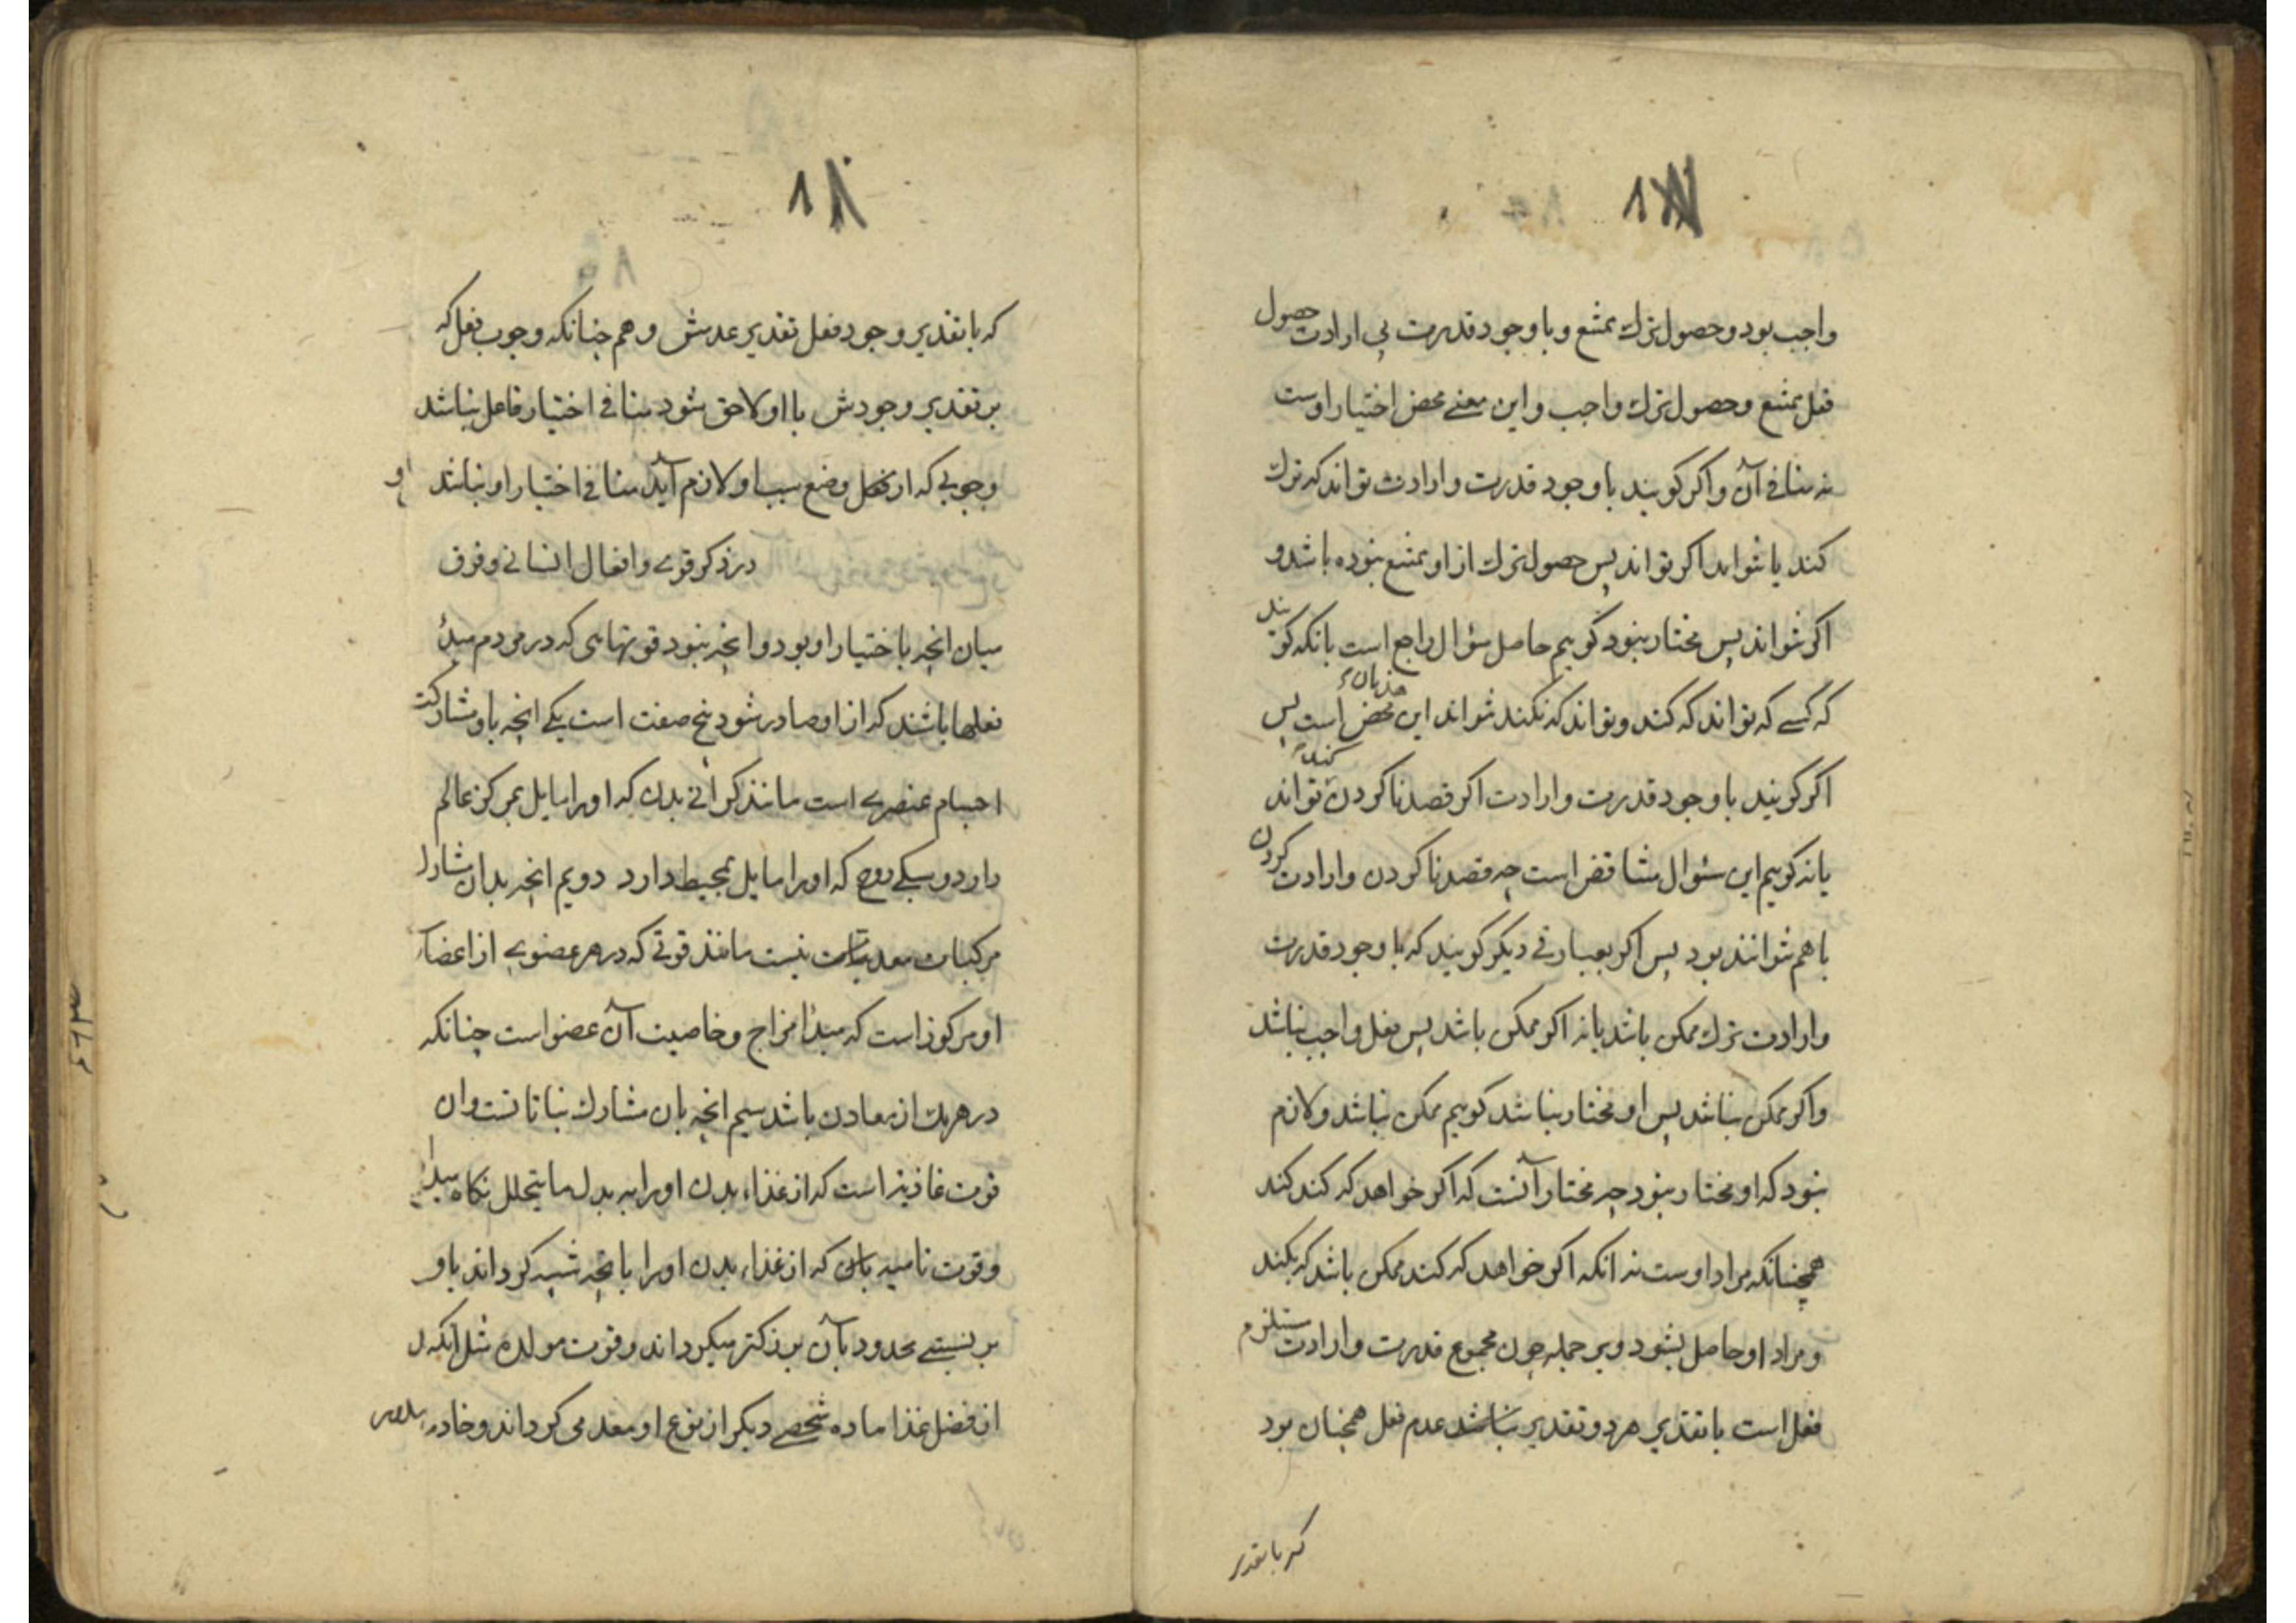 واجب بود و حصول ترک ممتنع و با وجود قدرت بی ارادت حصول
فعل ممتنع و حصول ترک واجب و این معنی محض اختیار اوست
نه منافی آن و اگر کویند با وجود قدرت و ارادت تواند که ترک
کند یا نتواند اکر تواند پس حصول ترک از او ممتنع نبوده باشد و
اکر نتواند پس مختار نبود کوییم حاصل سؤال راجع است بانکه کویند
که کسی که تواند که کند و تواند که نکند نتواند این هذیان محض است پس
اکر کویند با وجود قدرت و ارادت اکر قصد ناکردن کند تواند
یا نه کوییم این سئوال متناقض است چه قصد ناکردن و ارادت کردن
با هم نتوانند بود پس اکر بعبارتی دیکر کویند که با وجود قدرت
و ارادت ترک ممکن باشد یا نه اکر ممکن باشد پس فعل واجب نباشد
و اکر ممکن نباشد پس او مختار نباشد کوییم ممکن نباشد و لازم
نبود که او مختار نبود چه مختار آنست که اکر خواهد که کند کند
همچنانکه مراد اوست نه انکه اکر خواهد که کند ممکن باشد که نکند
و مراد او حاصل نشود و بر جمله چون مجموع قدرت و ارادت مستلزم
فعل است با تقدیر هر دو تقدیر عدم فعل همچنان بود
که با تقدیر
که با تقدیر وجود فعل تقدیر عدمش و هم چنانکه وجوب فعل که
بر تقدیر وجودش با او لاحق شود منافی اختیار فاعل نباشد
وجوبی که از وضع سبب او لازم آید منافی اختیار او نباشد
در ذکر قوی و افعال انسانی و فرق
میان انچه باختیار او بود و انچه نبود قوتهایی که در مردم مبدأ
فعلها باشند که از او صادر شود پنج صفت است یکی انچه باو مشارکت
اجسام عنصری است مانند کرانی بدن که او را مایل بمرکز عالم
دارد و سبکی روح که او را مایل بمحیط دارد دویم انچه بدان مشارک
مرکبات معدنیات نیست مانند قوتی که در هر عضوی از اعضاء
او مرکوز است که مبدأ مزاج و خاصیت آن عضو است چنانکه
در هر یک از معادن باشد سیم انچه بان مشارک نباتاتست و ان
قوت غاذیه است که از غذاء بدن او را به بدل ما یتحلل نکاه میدارد
و قوت نامیه بان که از غذاء بدن او را بانچه شبیه کرداند باو
بر نسبتی محدود بآن بزرکتر میکرداند و قوت مولده مثل انکه
از فضل غذا ماده شخصی دیکر از نوع او معد می کرداند و خادم